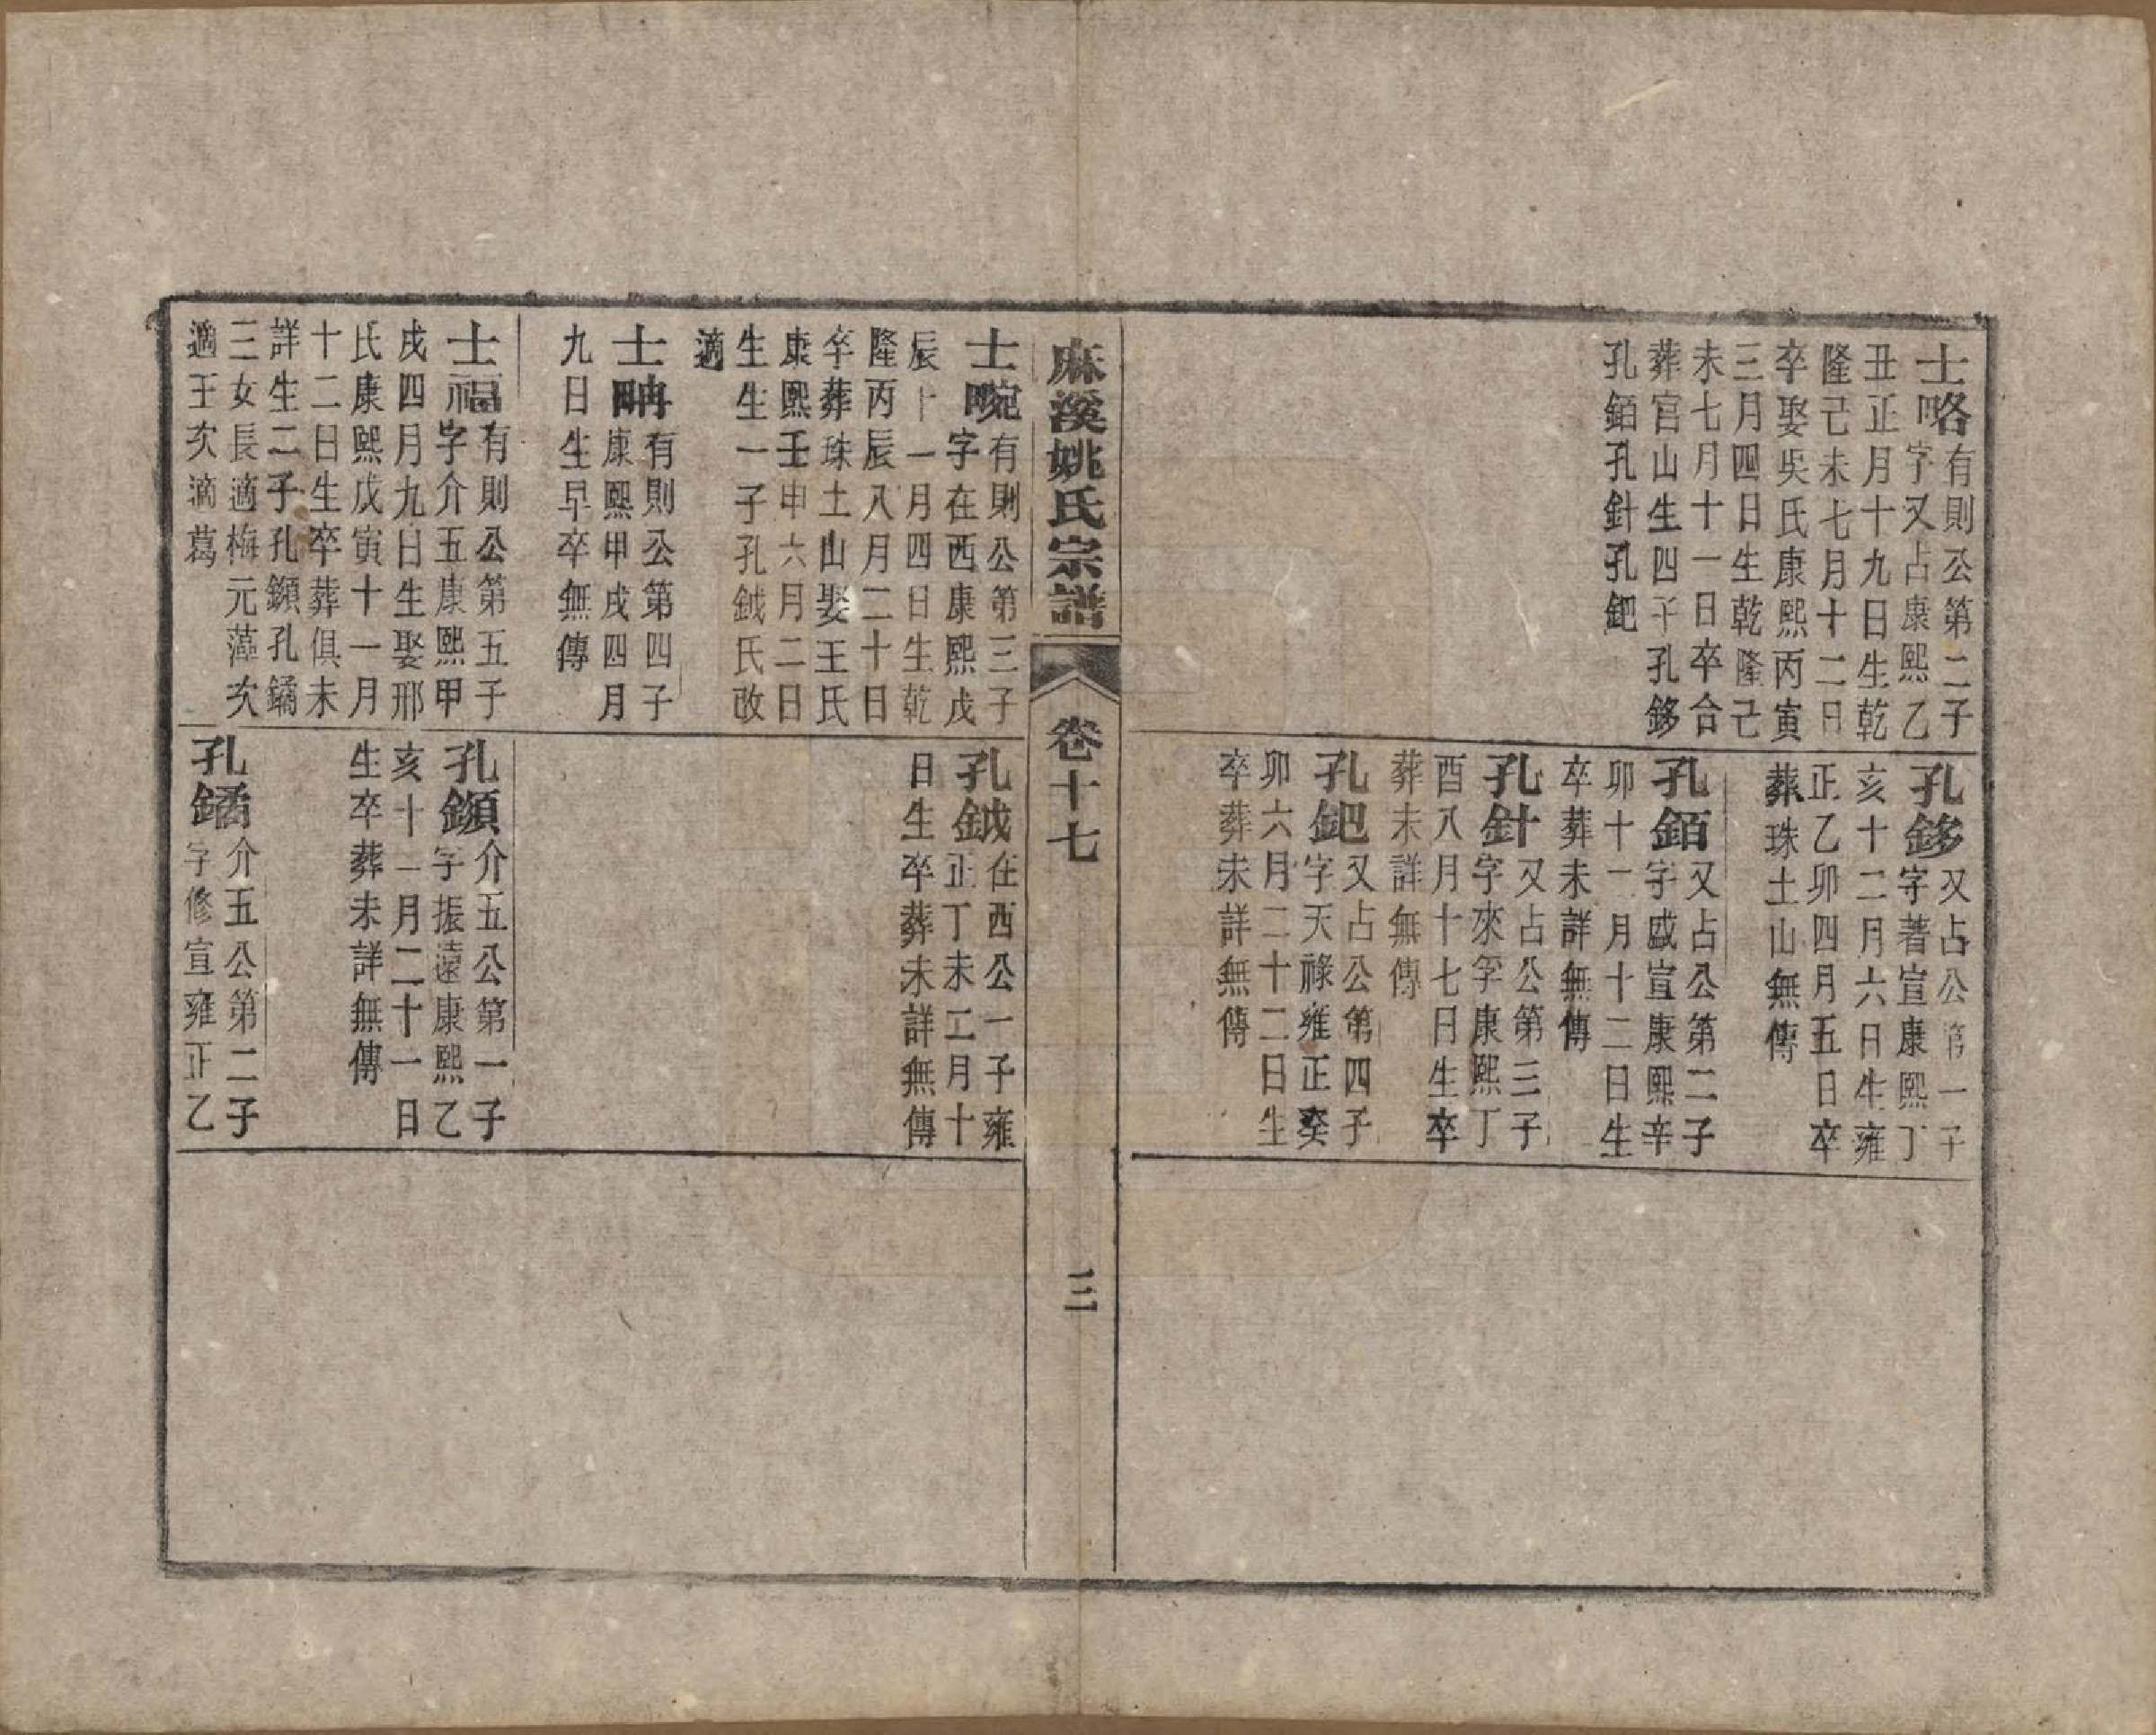 士略有則公第二子
字又占康熙乙
丑正月十九日生乾
隆己未七月十二日
卒娶吳氏康熙丙寅
三月四日生乾隆己
未七月十一日卒合
葬宮山生四子孔鉹
孔銆孔針孔鈀
孔鉹又占公第一子
字著宣康熙丁
亥十二月六日生雍
正乙卯四月五日卒
葬珠土山無傳
孔銆又占公第二子
字盛宣康熙辛
卯十一月十二日生
卒葬未詳無傳
孔針又占公第三子
字來學康熙丁
酉八月十七日生卒
葬未詳無傳
孔鈀又占公第四子
字天祿雍正癸
卯六月二十二日生
卒葬未詳無傳
麻溪姚氏宗譜
卷十七
三
士畹有則公第三子
字在西康熙戊
辰十一月四日生乾
隆丙辰八月二十日
卒葬珠土山娶王氏
康熙壬申六月二日
生生一子孔鉞氏改
適
士畘有則公第四子
康熙甲戌四月
九日生早卒無傳
士福有則公第五子
字介五康熙甲
戌四月九日生娶邢
氏康熙戊寅十一月
十二日生卒葬俱未
詳生二子孔鎖孔鐍
三女長適梅元薄次
適王次適葛
孔鉞在西公一子雍
正丁未二月十
日生卒葬未詳無傳
孔介五公第一子
字振遠康熙乙
亥十一月二十一日
生卒葬未詳無傳
孔鐍介五公第二子
字修宣雍正乙